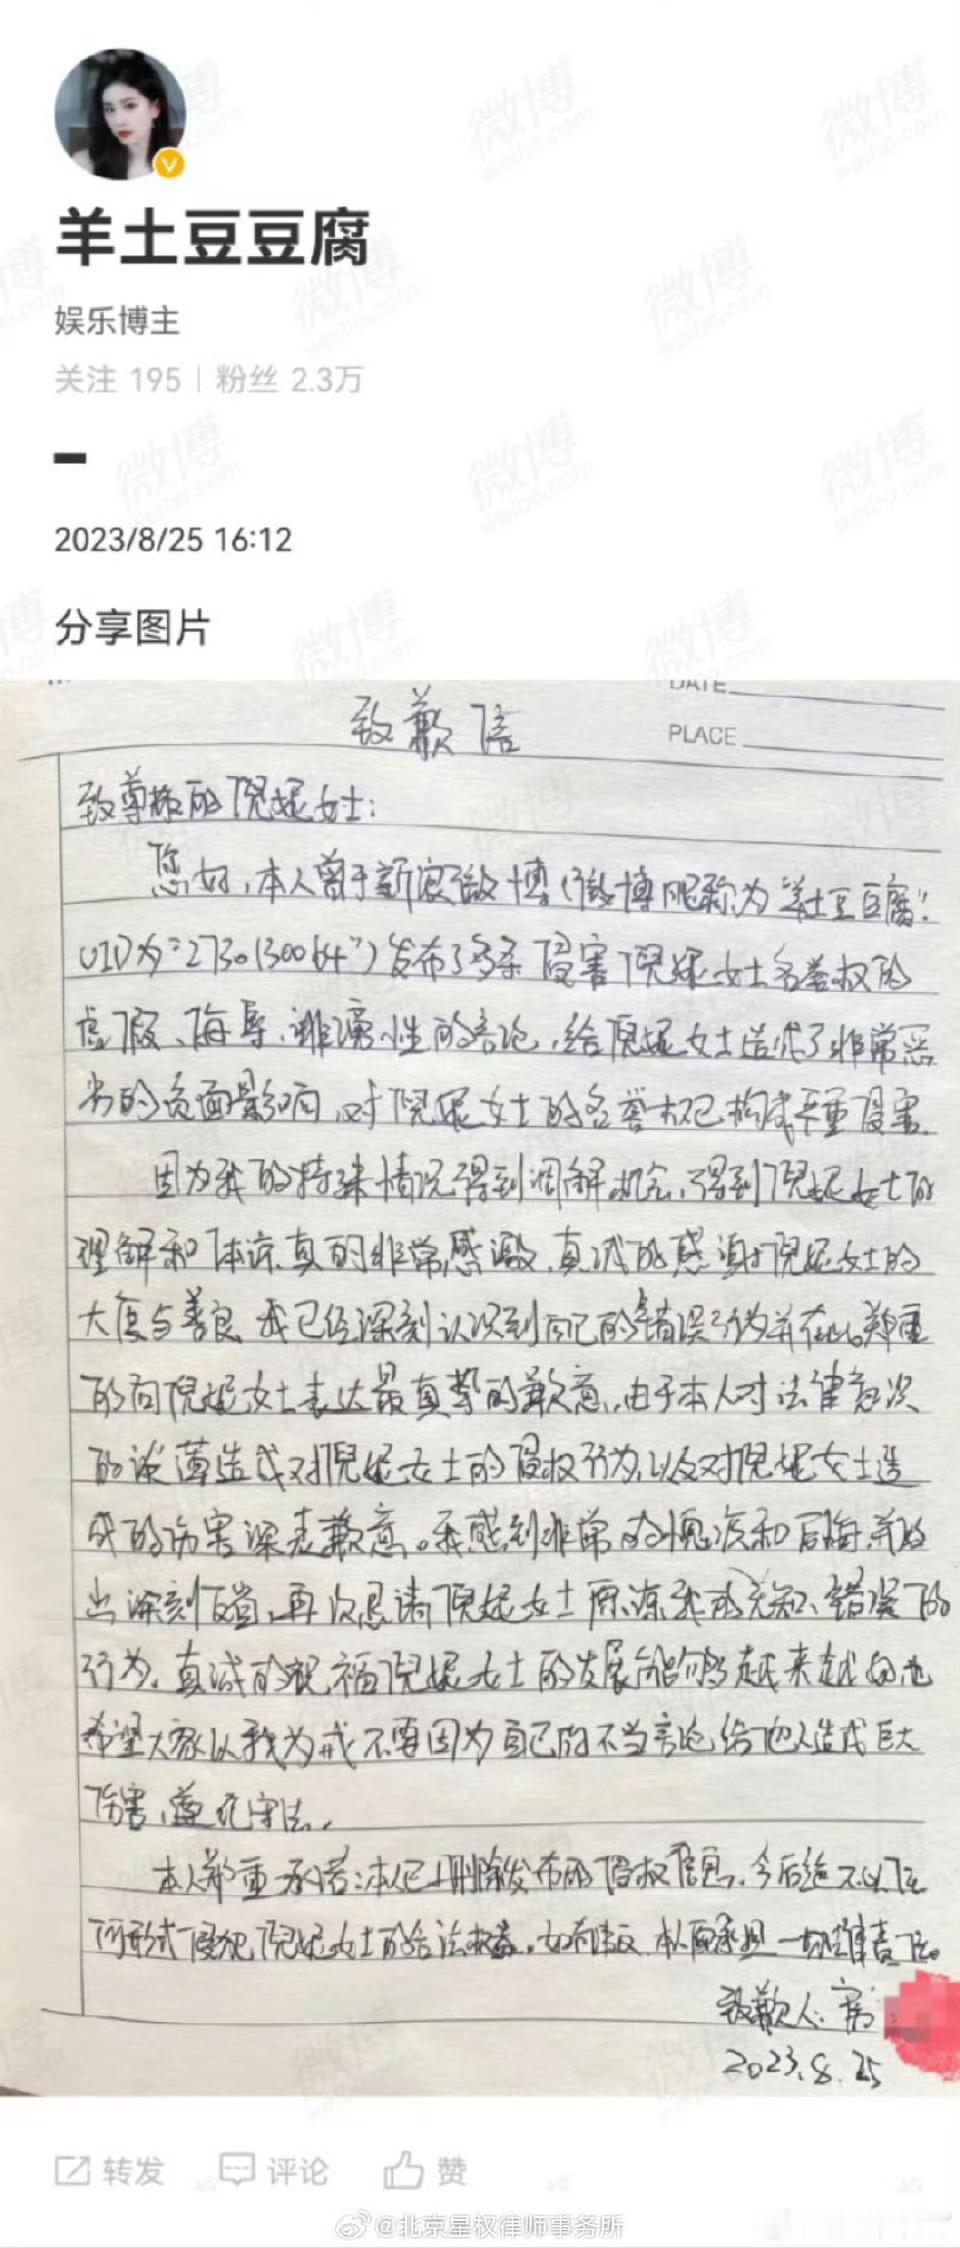 羊土豆豆腐
娱乐博主
关注 195 | 粉丝 2.3万
2023/8/25 16:12
分享图片
DATE
PLACE
致歉信
致尊敬的倪妮女士：
您好，本人曾于新浪微博（微博昵称为“羊土豆豆腐”
UID为“2730130064”）发布了多条侵害倪妮女士名誉权的
虚假、侮辱、诽谤性的言论，给倪妮女士造成了非常恶
劣的负面影响，对倪妮女士的名誉权已构成严重侵害。
因为我的特殊情况得到调解机会，得到倪妮女士的
理解和体谅，真的非常感激，真诚的感谢倪妮女士的
大度与善良，我已经深刻认识到自己的错误行为并在此郑重
的向倪妮女士表达最真挚的歉意，由于本人对法律意识
的淡薄造成对倪妮女士的侵权行为，以及对倪妮女士造
成的伤害深表歉意。我感到非常的愧疚和后悔，并做
出深刻反省，再次恳请倪妮女士原谅我的无知、错误的
行为，真诚的祝福倪妮女士的发展能够越来越好，也
希望大家以我为戒不要因为自己的不当言论给他人造成巨大
伤害，遵纪守法。
本人郑重承诺：本人已删除发布的侵权信息，今后绝不以任
何形式侵犯倪妮女士的合法权益，如有违反，本人愿承担一切法律责任。
致歉人：
2023.8.25
转发 评论 赞
@北京星权律师事务所
微博
weibo.com